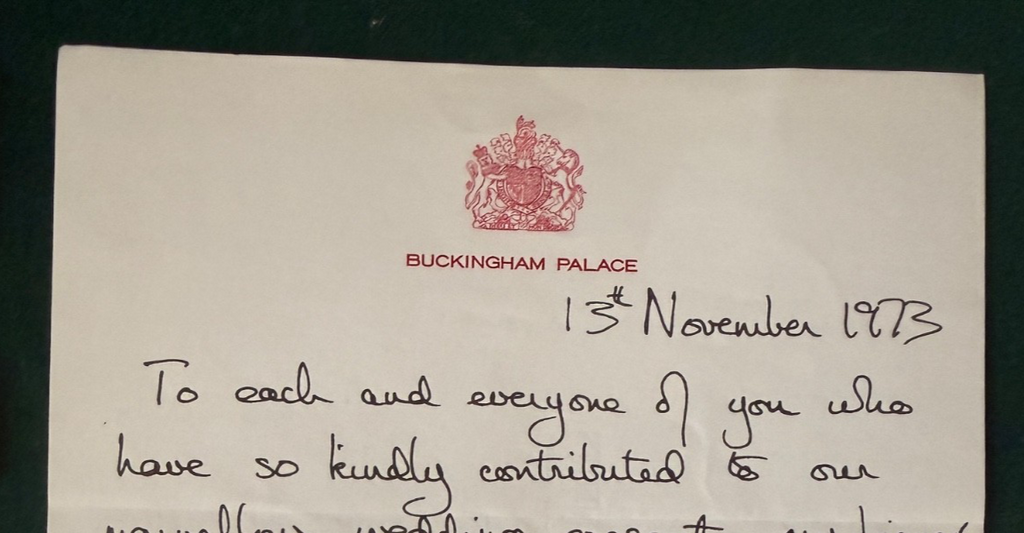 BUCKINGHAM PALACE
13th November 1973
To each and everyone of you who
have so kindly contributed to our
wedding